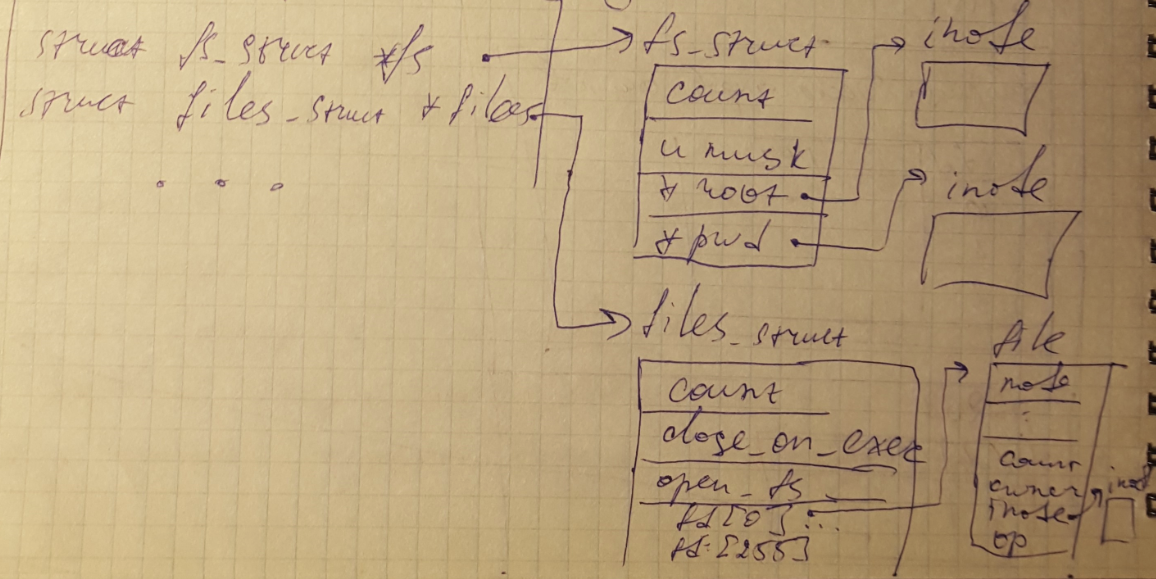 struct fs_struct *fs
struct files_struct * files
. . .
fs_struct
count
umask
* root
* pwd
inode
inode
files_struct
count
close_on_exec
open_fs
fd[0] ...
fd[255]
file
mode
:
count
owner
inode
op
inod